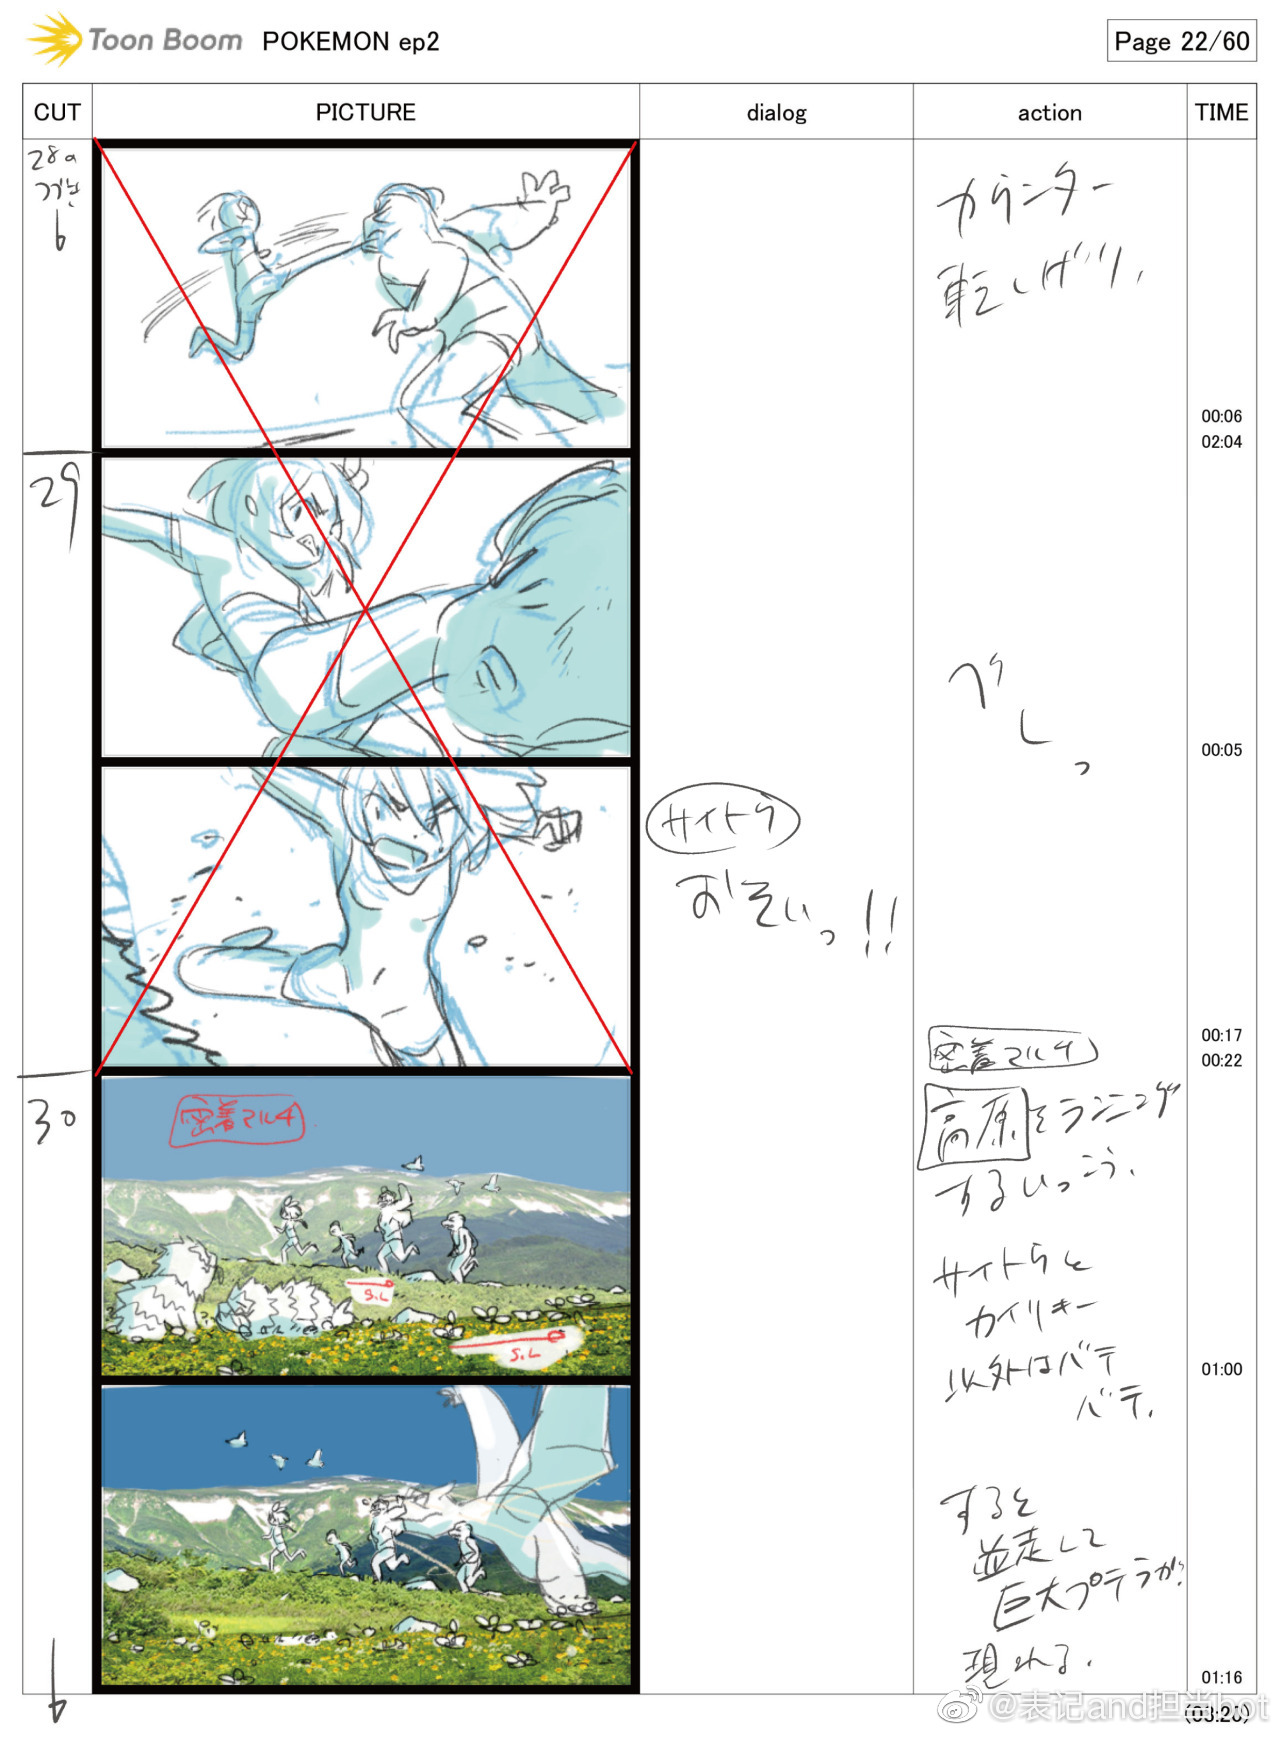 Toon Boom POKEMON ep2
Page 22/60
CUT PICTURE dialog action TIME
28a
カウンター
転しげり、
00:06
02:04
29
グ
し
っ
00:05
サイトウ
おそいっ!!
00:17
00:22
30
密着マルチ
密着マルチ
高原をランニング
するいっこう、
S.L
S.L
サイトウと
カイリキー
以外はバテ
バテ、
01:00
すると
並走して
巨大プテラが
現れる、
01:16
(03:20)
@表记and担当bot